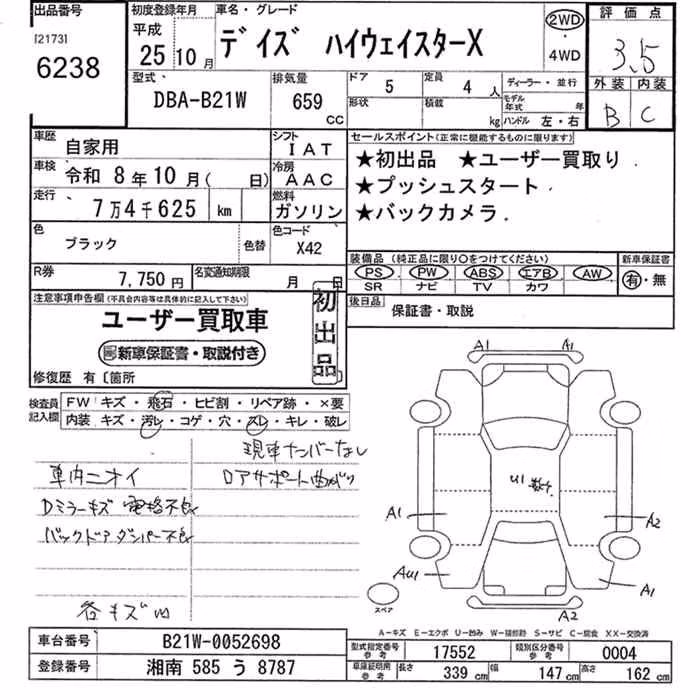 出品番号
[2173]
6238
初度登録年月
平成
25 10 月
車名・グレード
デイズ ハイウェイスターX
2WD
・
4WD
評価点
3.5
外装 内装
B C
型式
DBA-B21W
排気量
659
CC
ドア 5
定員 4 人
形状
積載 kg
ディーラー・並行
モデル年式 年
ハンドル 左・右
車歴
自家用
シフト
IAT
車検
令和 8年10月( 日)
冷房
AAC
走行
7万4千625 km
燃料
ガソリン
色
ブラック
色替
色コード
X42
R券
7,750円
名変通知期限
月 日
セールスポイント(正常に機能するものに限ります)
★初出品 ★ユーザー買取り
★プッシュスタート
★バックカメラ
装備品(純正品に限り○をつけてください)
PS PW ABS エアB AW
SR ナビ TV カワ
新車保証書
有・無
後日品
保証書・取説
注意事項申告欄(不具合内容等は具体的に記入して下さい)
ユーザー買取車
新車保証書・取説付き
初出品
修復歴 有〔箇所
検査員記入欄
FW キズ・飛石・ヒビ割・リペア跡・×要
内装 キズ・汚レ・コゲ・穴・スレ・キレ・破レ
現車ナンバーなし
車内ニオイ
Dアサポート曲がり
Dミラーキズ 電格不良
バックドアダンパー不良
各キズ凹
A1
A1
U1
A1
A2
AU1
A1
A2
スペア
A-キズ E-エクボ U-凹み W-補修跡 S-サビ C-腐食 XX-交換済
車台番号
B21W-0052698
登録番号
湘南 585 う 8787
型式指定番号
参考
17552
類別区分番号
参考
0004
車庫証明用
参考
長さ 339 cm
幅 147 cm
高さ 162 cm